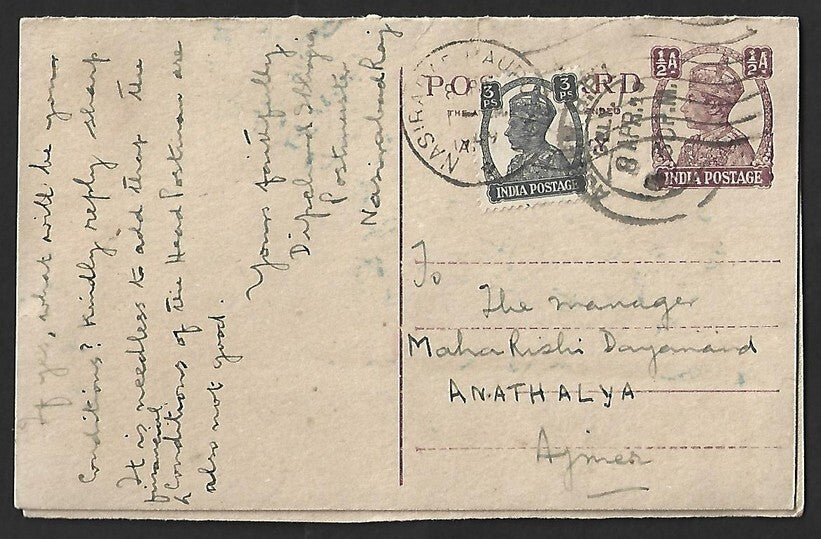 If yes, what will be your
Conditions? Kindly reply sharp
It is needless to add that the
financial
& Conditions of the Head Postman are
also not good.
Yours faithfully
Postmaster
Nasirabad Raj
POST CARD
3 PS
3 PS
INDIA POSTAGE
½A
½A
INDIA POSTAGE
NASIRABAD
8 APR.
To
The manager
Maha Rishi Dayanand
ANATHALYA
Ajmer